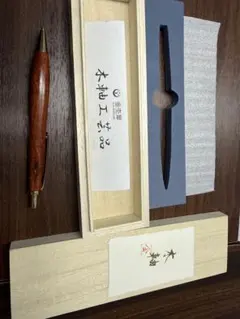 木軸工芸品
木軸